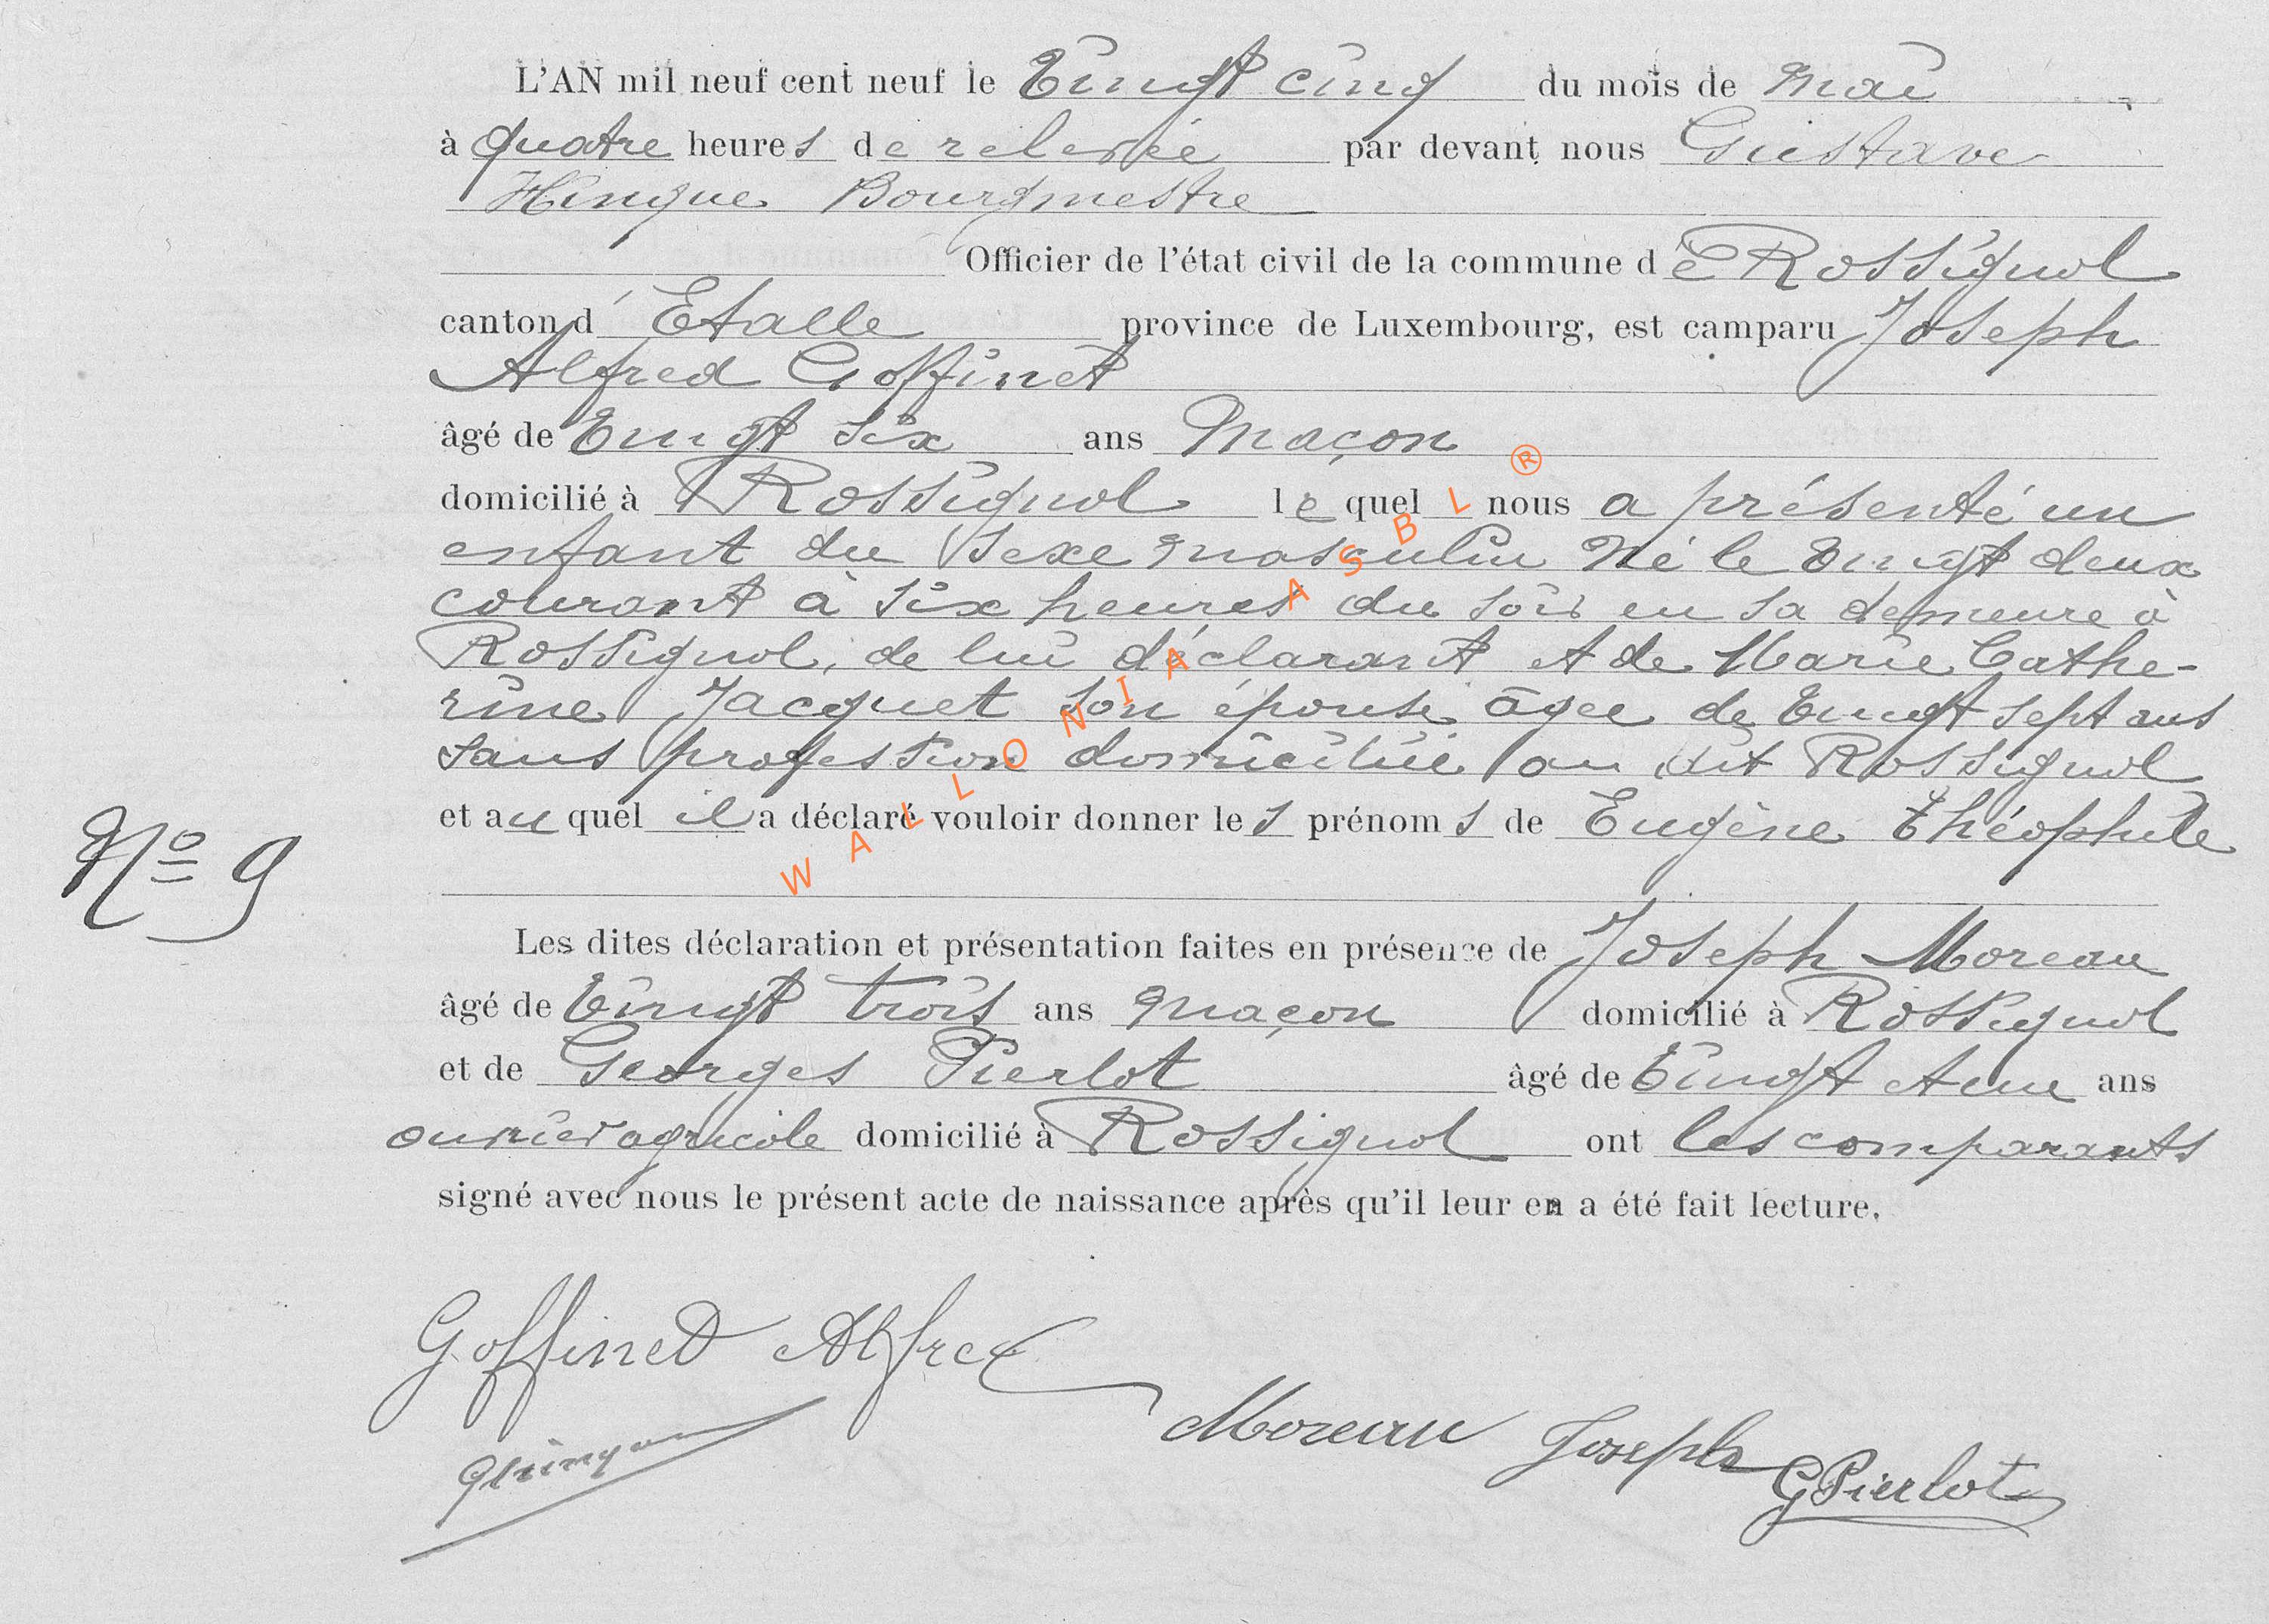 L'AN mil neuf cent neuf le Vingt cinq du mois de Mai
à quatre heures de relevée par devant nous Gustave
Hinque Bourgmestre
Officier de l'état civil de la commune de Rossignol
canton d'Etalle province de Luxembourg, est camparu Joseph
Alfred Goffinet
âgé de Vingt six ans Maçon
domicilié à Rossignol le quel nous a présenté un
enfant du sexe masculin Né le Vingt deux
courant à six heures du soir en sa demeure à
Rossignol, de lui déclarant et de Marie Cathe-
rine Jacquet son épouse âgée de Vingt sept ans
sans profession domiciliée au dit Rossignol
et au quel il a déclaré vouloir donner les prénoms de Eugène Théophile
Nº 9
Les dites déclaration et présentation faites en présence de Joseph Moreau
âgé de Vingt trois ans Maçon domicilié à Rossignol
et de Georges Pierlot âgé de Vingt et un ans
ouvrier agricole domicilié à Rossignol ont les comparants
signé avec nous le présent acte de naissance après qu'il leur en a été fait lecture.
Goffinet Alfred
Moreau Joseph
G Pierlot
WALLONIA ASBL ®